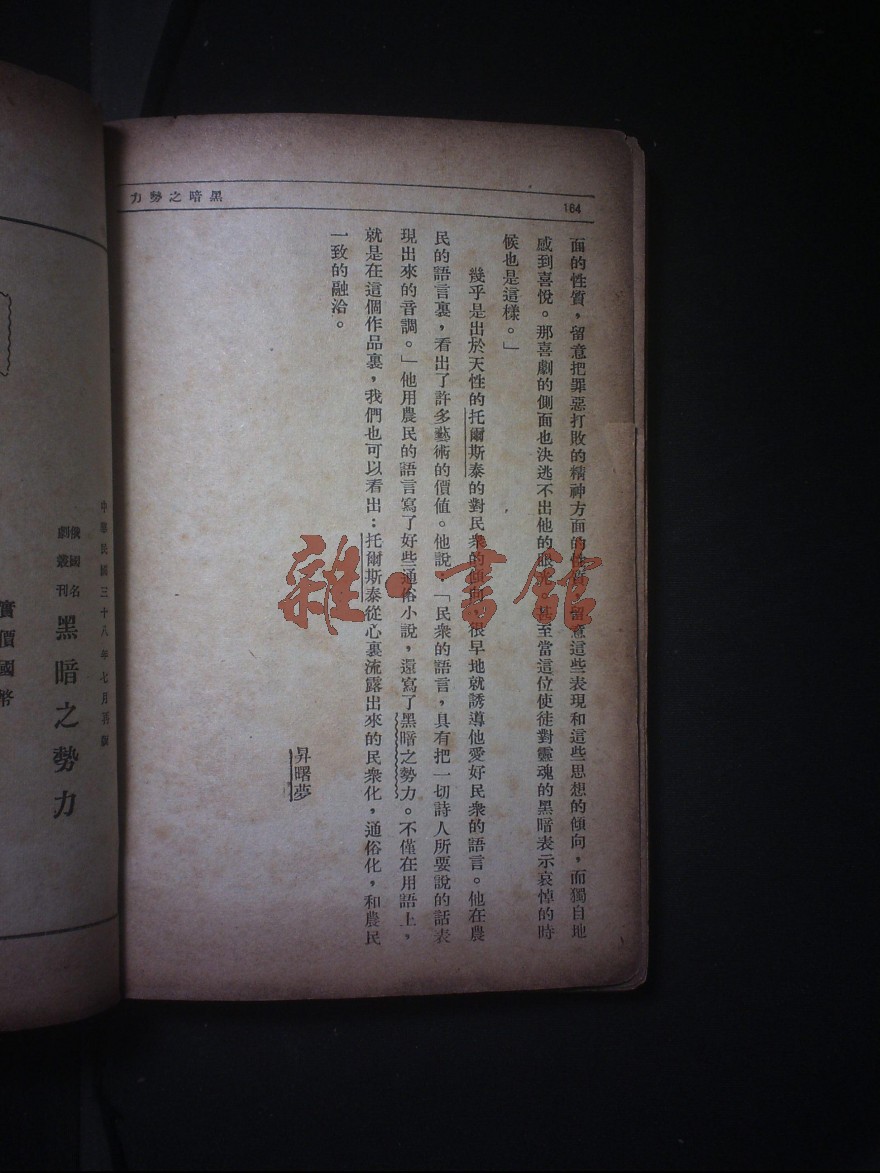 黑暗之勢力
164
面的性質，留意把罪惡打敗的精神方面的性質，留意這些表現和這些思想的傾向，而獨自地
感到喜悅。那喜劇的側面也決逃不出他的眼。甚至當這位使徒對靈魂的黑暗表示哀悼的時
候也是這樣。」
幾乎是出於天性的托爾斯泰的對民衆的傾向，很早地就誘導他愛好民衆的語言。他在農
民的語言裏，看出了許多藝術的價値。他說：「民衆的語言，具有把一切詩人所要說的話表
現出來的音調。」他用農民的語言寫了好些通俗小說，還寫了黑暗之勢力。不僅在用語上，
就是在這個作品裏，我們也可以看出：托爾斯泰從心裏流露出來的民衆化，通俗化，和農民
一致的融洽。
昇曙夢
雜·書館
中華民國三十八年七月再版
俄國名
劇叢刊
黑暗之勢力
實價國幣